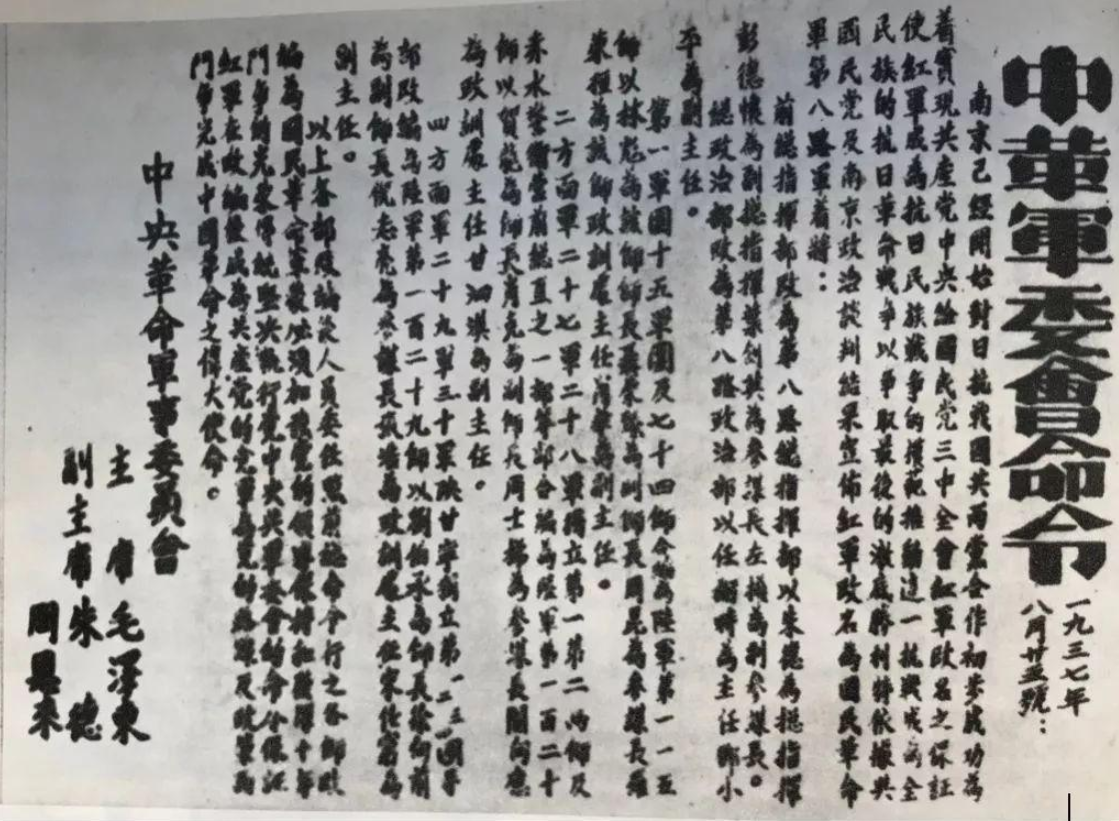 中革軍委會命令
一九三七年
八月廿五號：
南京已經開始對日抗戰國共兩黨合作初步成功為
着實現共產党中央給國民党三中全會紅軍改名之保証
使紅軍成為抗日民族戰爭的模範推動這一抗戰成為全
民族的抗日革命戰爭以爭取最後的澈底勝利特依據共
國民党及南京政治談判結果宣佈紅軍改名為國民革命
軍第八路軍着將：
前總指揮部改為第八路總指揮部以朱德為總指揮
彭德懷為副總指揮葉劍英為參謀長左權為副參謀長。
總政治部改為第八路政治部以任弼時為主任鄧小
平為副主任。
第一軍團十五軍團及七十四師合編為陸軍第一一五
師以林彪為該師師長聶榮臻為副師長周昆為參謀長羅
榮桓為該師政訓處主任肖華為副主任。
二方面軍二十七軍二十八軍獨立第一第二兩師及
赤水警衛營前總直之一部等部合編為陸軍第一百二十
師以賀龍為師長肖克為副師長周士揥為參謀長關向應
為政訓處主任甘泗淇為副主任。
四方面軍二十九軍三十軍陝甘寧獨立第一二三四團等
部改編為陸軍第一百二十九師以劉伯承為師長徐向前
為副師長倪志亮為參謀長張浩為政訓處主任宋任窮為
副主任。
以上各部改編後人員委任照前總命令行之各部改
編為國民革命軍後必須加強党的領導保持和發揚十年
鬥爭的光榮傳統堅決執行党中央與軍委會的命令保証
紅軍在改編後成為共產党的党軍為党的路線及政策而
鬥爭完成中國革命之偉大使命。
中央革命軍事委員會
主席毛澤東
副主席朱德
周恩來